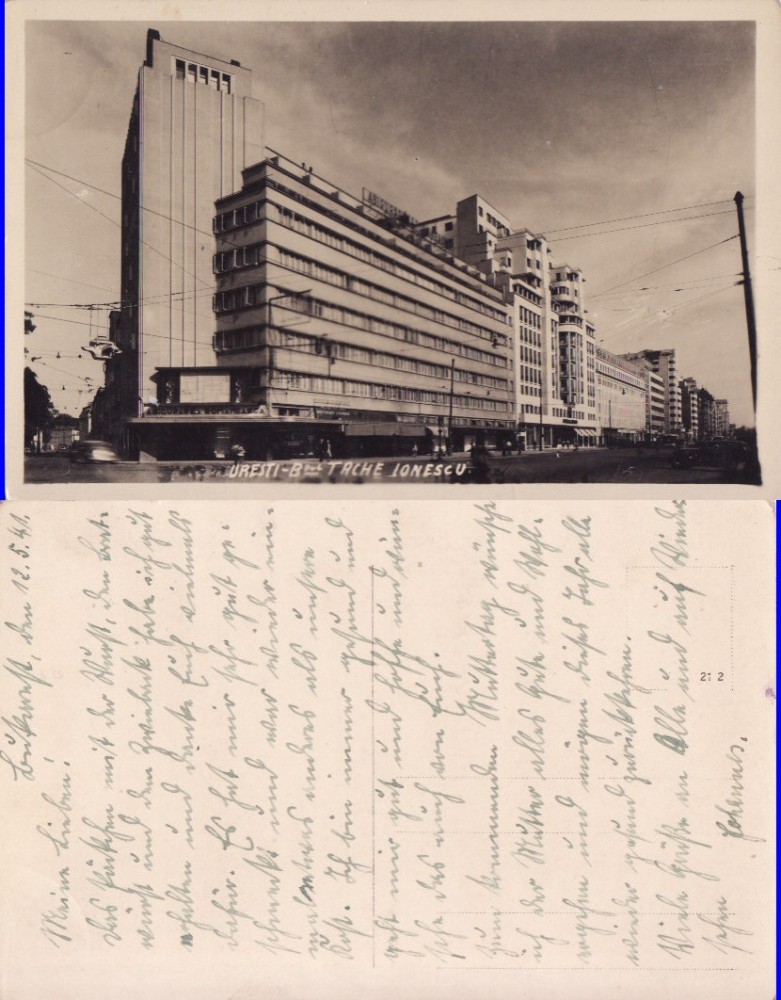 URESTI-Bdul TACHE IONESCU.
Bukarest, den 12.5.41.
Meine Lieben!
Das Päckchen mit der Wurst, den Brat-
wurst und dem Zwieback habe ich gut
erhalten und danke Euch vielmals
dafür. Es hat mir sehr gut ge-
schmeckt und war wieder ein-
mal etwas anderes als unsere
Kost. Ich bin immer gesund und
geht mir gut und hoffe und wün-
sche das auch von Euch.
Zum kommenden Muttertag wünsche
ich der Mutter alles Gute und Wohl-
ergehen und mögen dieses Jahr alle
wieder gesund zurückkehren.
Viele Grüße an Alle und auf Wieder
sehen Johannes.
212